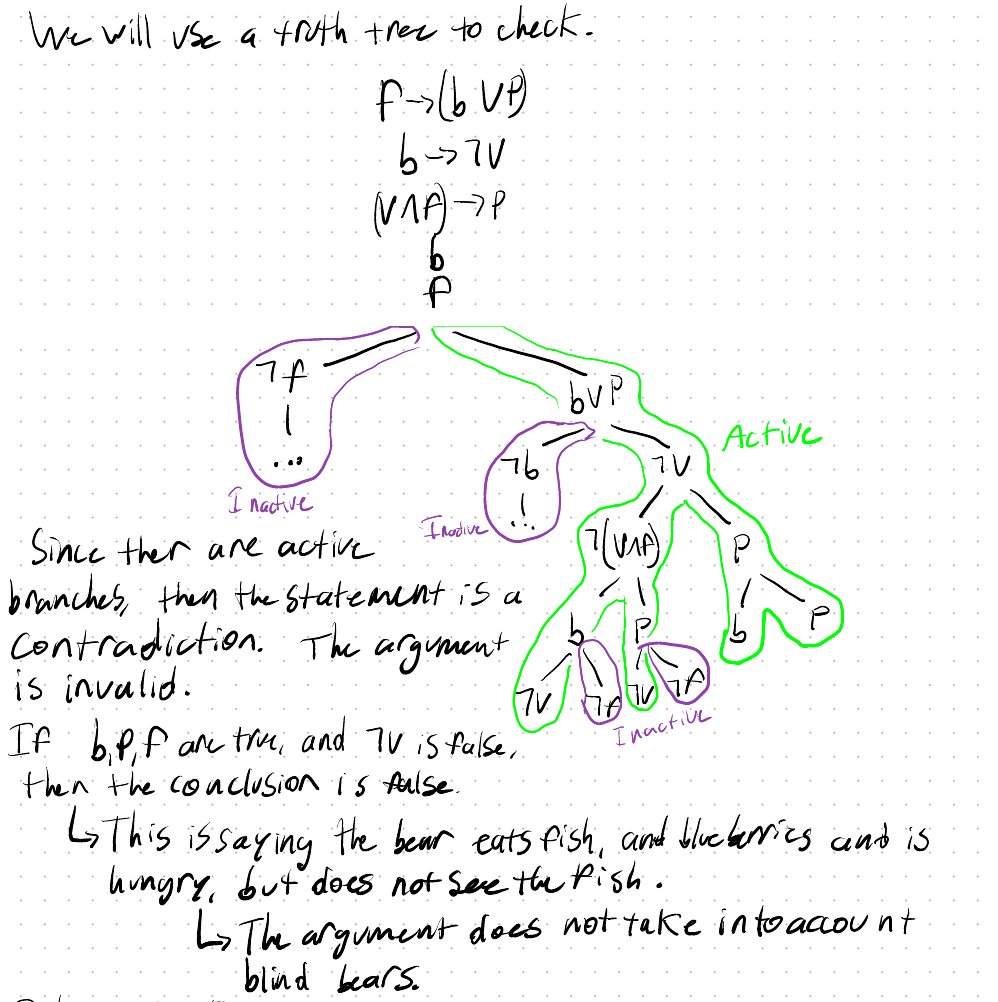 We will use a truth tree to check.
f→(b∨P)
b→¬V
(V∧f)→P
b
f
¬f
b∨P
Active
¬b
¬V
...
Inactive
...
Inactive
¬(V∧f)
P
Since ther are active
branches, then the statement is a
contradiction. The argument
is invalid.
b
P
b
P
¬V
¬f
¬V
¬f
Inactive
If b,P,f are true, and ¬V is false,
then the conclusion is false.
↳This is saying the bear eats fish, and blueberries and is
hungry, but does not see the fish.
↳The argument does not take into account
blind bears.